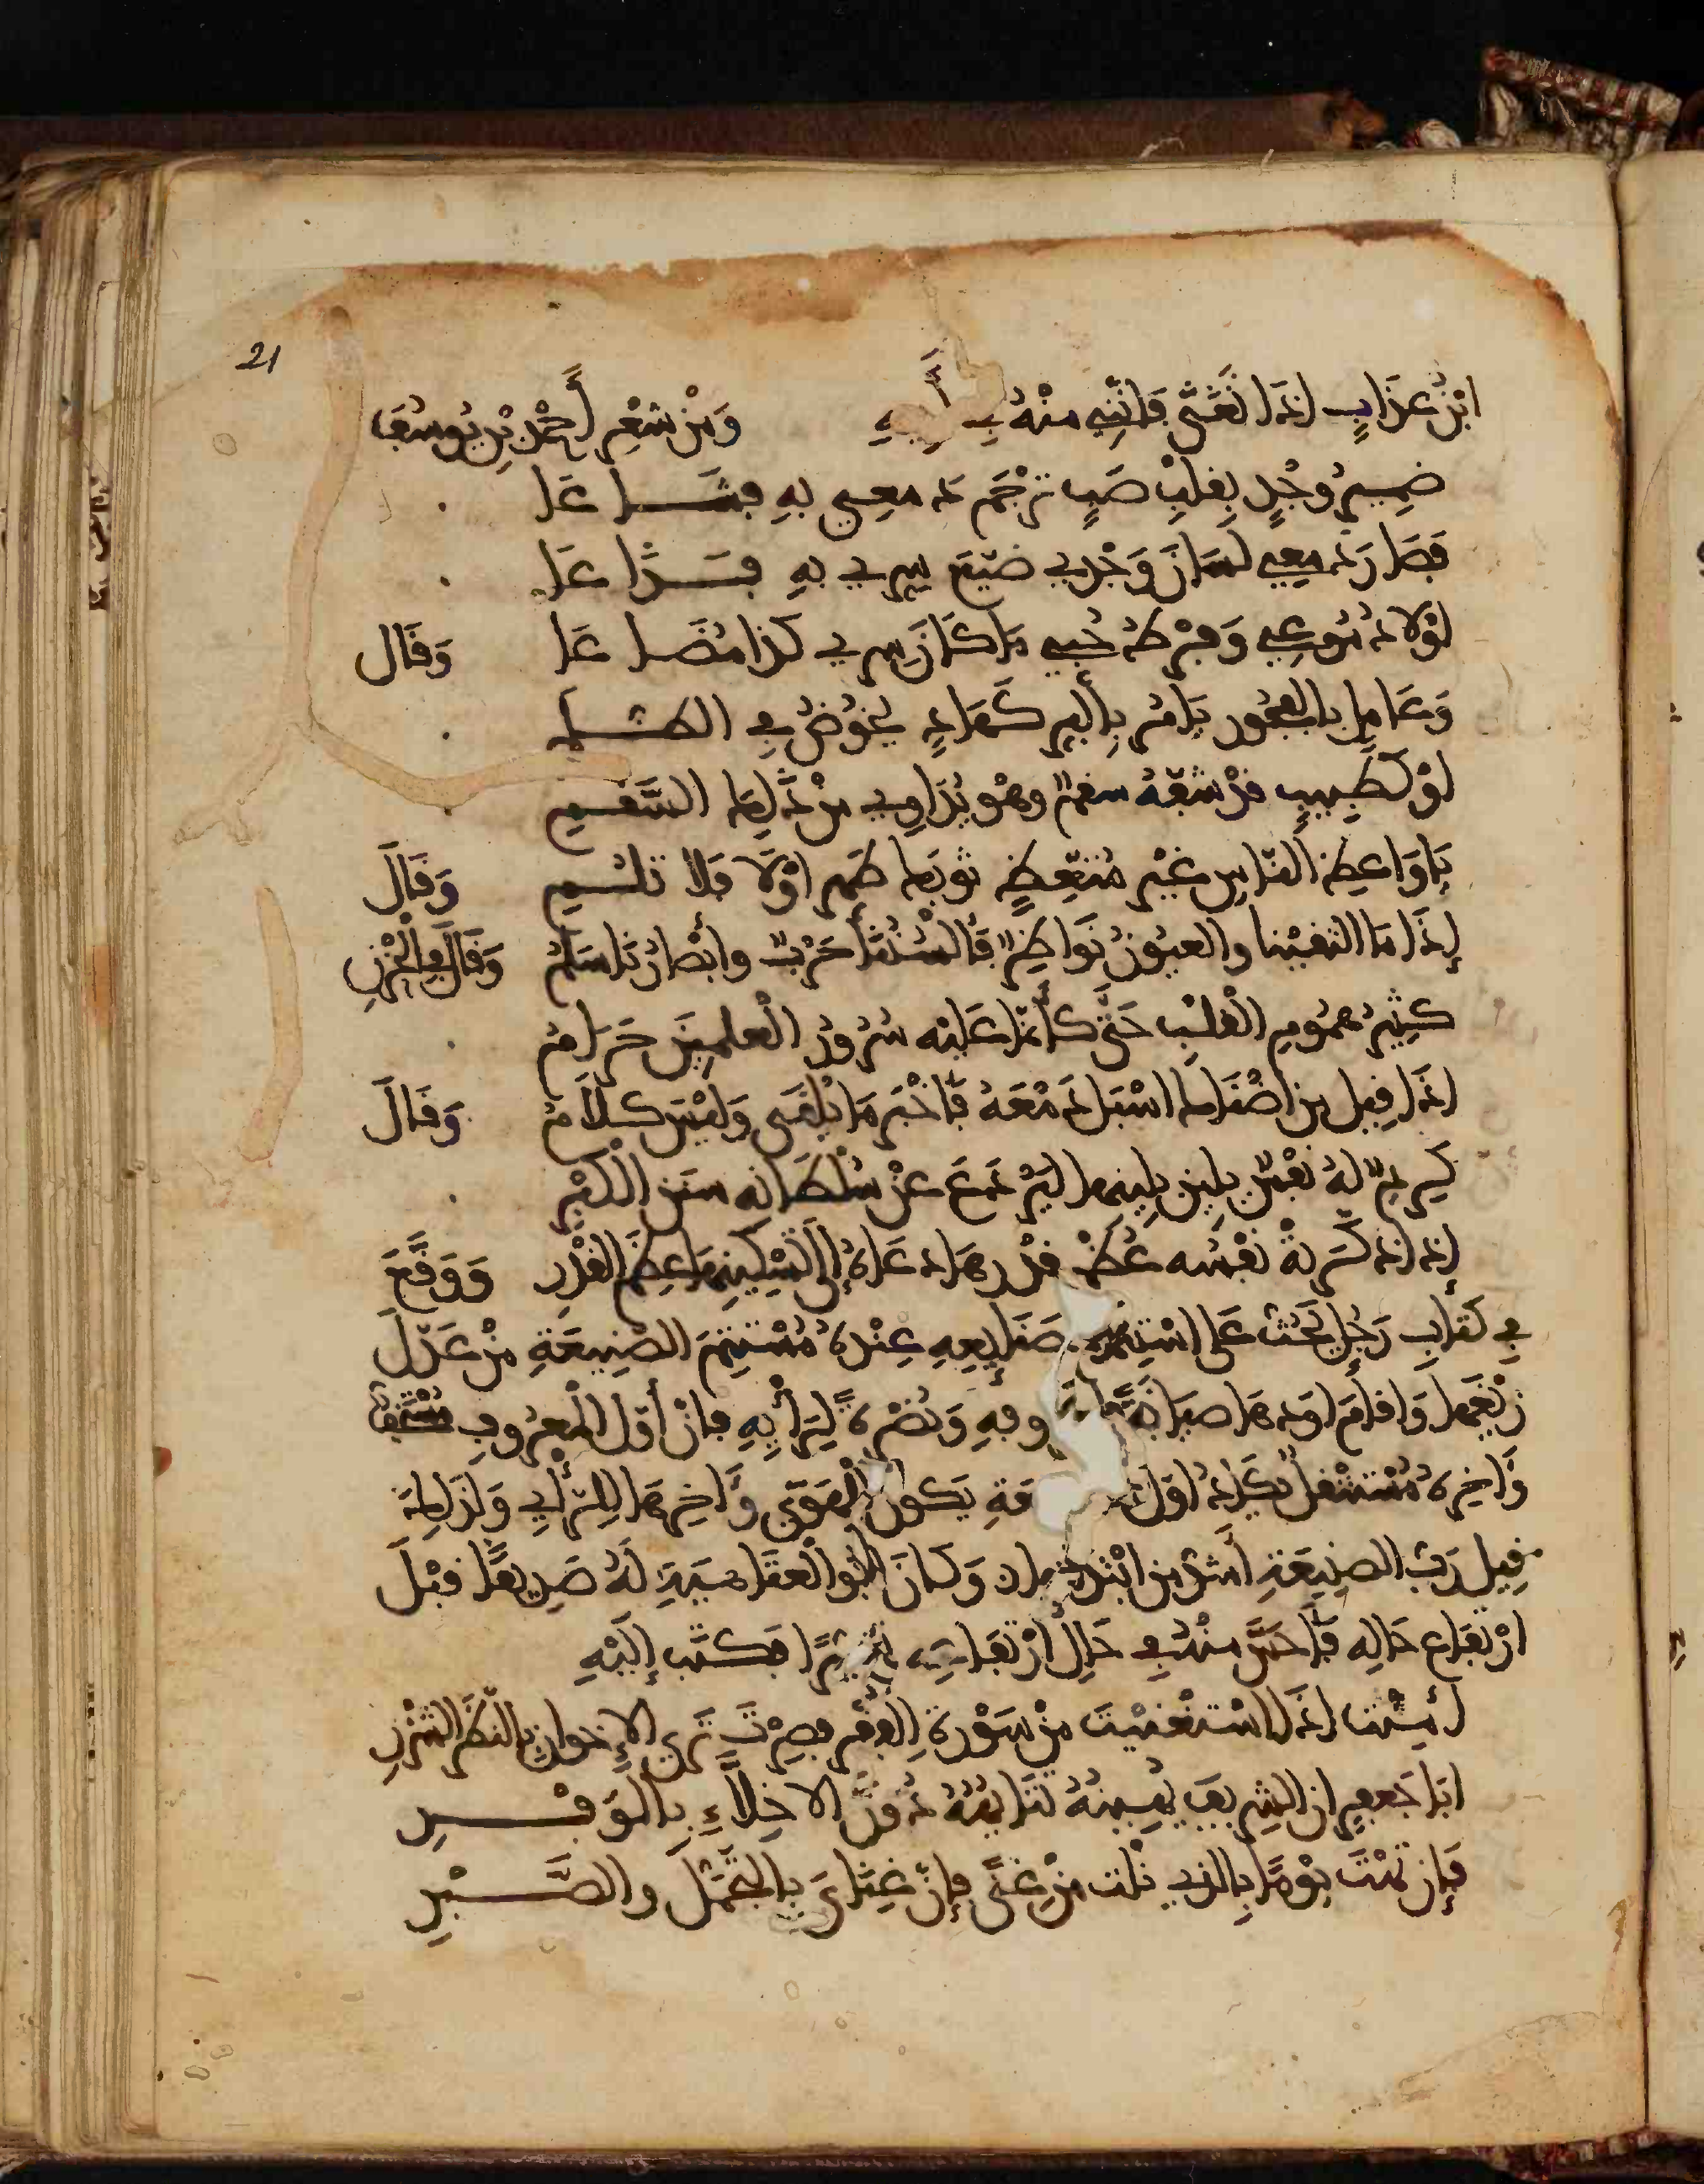 21
ابنُ عذابٍ إذا تغنَّى فإنني منه في أ
ومن شعر أحمد بن يوسف
ضميرُ وجدٍ بقلبِ صبٍ ترجم دمعي به فشاعا
فصار دمعي لسان وجدي ضيع سري به فذاعا
لولا دموعي وفرط حبي ما كان سري كذا مضاعا وقال
وعامل بالفجور يأمر بالبر كهادٍ يخوض في الظلم
أو كطبيبٍ قد شفّه سقمٌ وهو يداوي من ذلك السقم
يا واعظ الناس غير متعظٍ ثوبك طهر أولا فلا تلم وقال
إذا ما التقينا والعيونُ نواظرٌ فألسننا حربٌ وأبصارنا سلمُ وقال في الحزن
كثيرُ هموم القلب حتى كأنما عليه سرورُ العلمين حرامُ
إذا قيل من أضناك أسبل دمعه فأخبر ما يلقى وليس كلامُ وقال
كريمٌ له نفسٌ يلين بلينها ليدفع عن سلطانه سنن الكبر
إذا ذكرته نفسه عُظم قدرها دعاه إلى تسكينها عظم القدر ووقّع
في كتاب رجل يحث على استتمام صنايعه عنده مُستتم الصنيعة من عدّل
زيغها وأقام أودها صيانةً وفه ونصرةً لرأيه فإن أوّل المعروف مستخف
وآخره مستثقل يكاد أوله يكون للهوى وآخرها للرأي ولذلك
قيل ربّ الصنيعة أشق من ابتدائها وكان أبو العتاهية له صديقًا قبل
ارتفاع حاله فأحسّ منه في حال ارتفاعه تغيّرًا فكتب إليه
أمنت إذا استغنيت من سورة الفقر فصرت ترى الإخوان بالنظر الشزر
أبا جعفر إن الشريف يُشينه تتايهُه دون الأخلاّءِ بالوفر
فإن تهت يومًا بالذي نلت من غنًى فإن غناي بالتجمّل والصبر